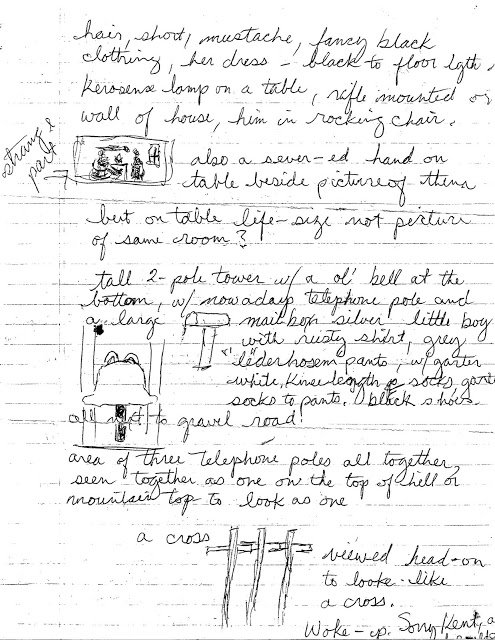 hair, short, mustache, fancy black
clothing, her dress - black to floor lgth.
Kerosense lamp on a table, rifle mounted on
wall of house, him in rocking chair.
strange part →
also a sever-ed hand on
table beside picture of them
but on table life-size not picture
of same room?
tall 2-pole tower w/ a ol' bell at the
bottom, w/ nowadays telephone pole and
a large mailbox silver little boy
with rusty shirt, grey
"lederhosem" pants, w/ garter
white, knee length socks, gart
socks to pants. black shoes.
all next to gravel road.
area of three telephone poles all together,
seen together as one on the top of hill or
mountain top to look as one
a cross
viewed head-on
to looke like
a cross.
Woke-up. Song Kent, a